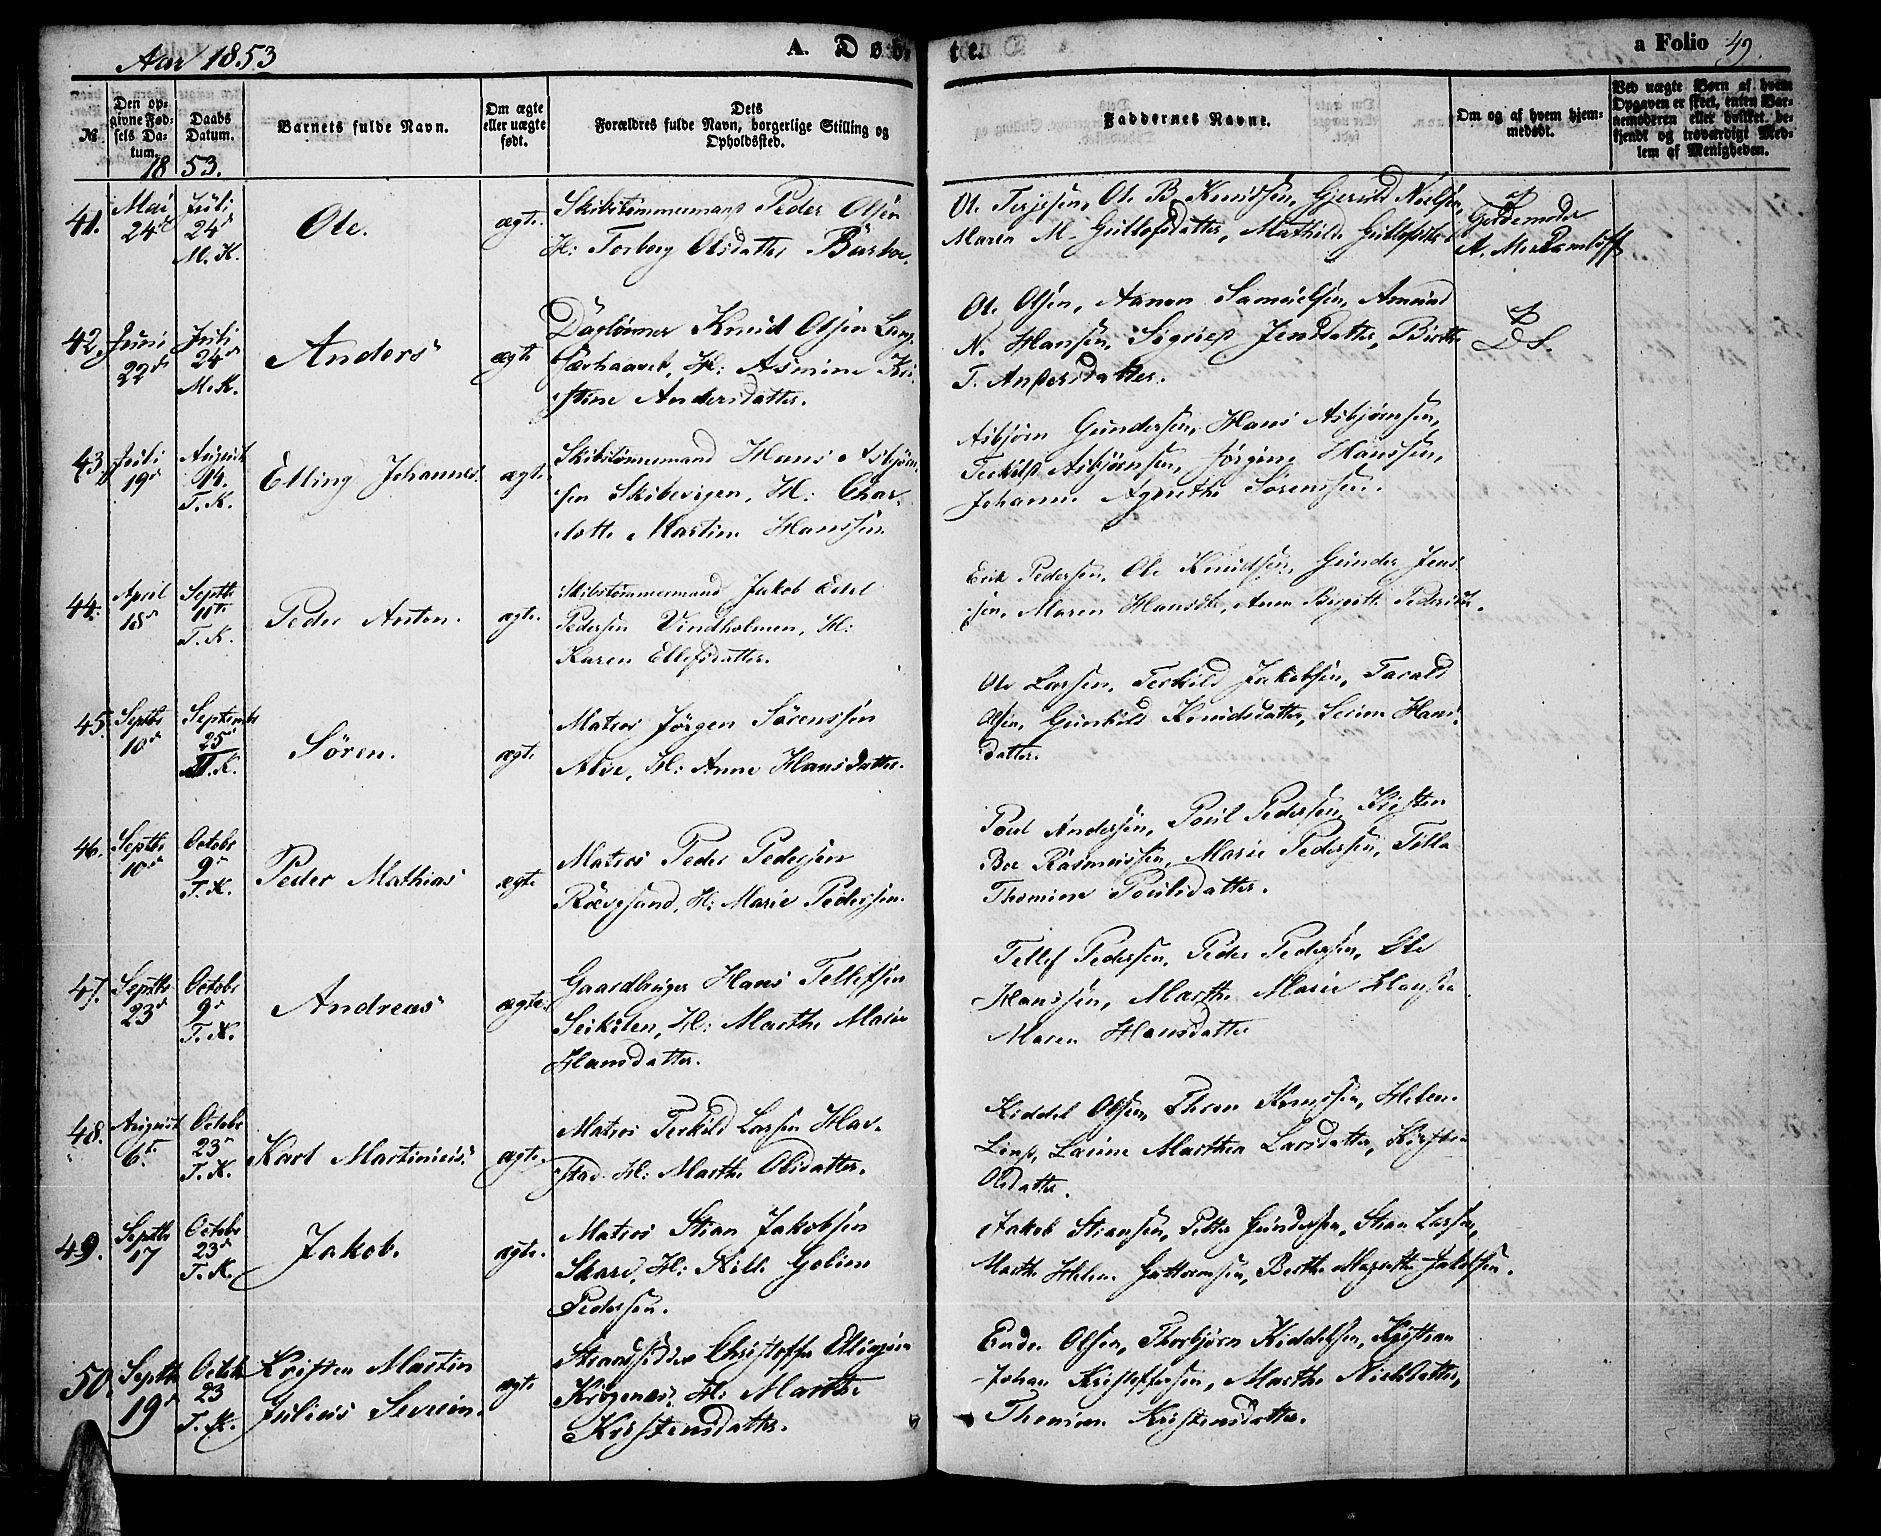 Aar 1853
A. Døb-
te.
a Folio 49.
№
Den op-
givne Fød-
sels Da-
tum.
Daabs
Datum.
Barnets fulde Navn.
Om ægte
eller uægte
født.
Dets
Forældres fulde Navn, borgerlige Stilling og
Opholdssted.
Faddernes Navne.
Om og af hvem hjem-
medøbt.
Ved uægte Børn af hvem
Opgaven er skeet, enten Bar-
nemoderen eller hvilket be-
kjendt og troværdigt Med-
lem af Menigheden.
1853.
41.
Mai
24d
Juli
24d
M. K.
Ole.
ægte.
Skibstømmermand Peder Olsen
H: Torborg Olsdatter
Ol. Terjesen, Ol. B. Knudsen, Gjeruld Nielsen,
Maren M. Gullofsdatter, Mathilde
Gjordemoder
A. M.
42.
Juni
22d
Juli
24d
M. K.
Anders
ægte
Daglønner Knud Olsen Lang-
H: Asmine Ki-
stine Andersdatter.
Ol. Olsen, Aanon Samuelsen, Amund
N. Hansen, Sigrid Jensdatter, Birthe
T. Andersdatter.
D S.
43.
Juli
19d
August
14.
T. K.
Elling Johannes.
ægte
Skibstømmermand Hans Asbjørn-
sen Skibevigen, H: Char-
lotte Martine Hanssen
Asbjørn Gundersen, Hans Asbjørnsen,
Terkild Asbjørnsen, Jørgine Hanssen,
Johanne Agnethe Sørenssen.
44.
April
18d
Septbr
11te
T. K.
Peder Anton.
ægte.
Skibstømmermand Jakob Edel
Pedersen Vindholmen, H:
Karen Ellefsdatter.
Erik Pedersen, Ole Knudsen, Gunder Jens-
sen, Maren Hansdtr, Anne Birgitte Pedersdtr.
45.
Septbr
10d
Septembr
25
M. K.
Søren.
ægte
Matros Jørgen Sørenssen
Alve, H: Anne Hansdatter.
Ole Larsen, Terkild Jakobsen, Tarald
Olsen, Gunhild Knudsdatter, Serine Hans-
datter.
46.
Septbr
10d
Octobr
9d
T. K.
Peder Mathias
ægte
Matros Peder Pedersen
Rævesand, H: Marie Pedersen.
Poul Andersen, Poul Pedersen, Kristen
Boe Rasmussen, Marie Pedersen, Tilla
Thomine Poulsdatter.
47.
Septbr
23d
Octobr
9d
T. K.
Andreas
ægte.
Gaardbruger Hans Tellefsen
H: Marthe Marie
Hansdatter.
Tellef Pedersen, Peder Pedersen, Ole
Hanssen, Marthe Marie Hansen
Maren Hansdatter
48.
August
6te
Octobr
23d
T. K.
Karl Martinius.
ægte.
Matros Terkild Larsen Hav-
stad. H: Marthe Olsdatter.
Kiddel Olsen, Helene
Marthea Larsdatter, Kirsten
Olsdatter.
49.
Septbr
17
Octobr
23d
T. K.
Jakob.
ægte.
Matros Stian Jakobsen
Skare, H: Sille Goline
Pedersen.
Jakob Stiansen, Petter Gundersen, Stian Larsen,
Marthe Helene Guttormsen, Berthe Margrethe Jakobsen.
50.
Septbr
19d
Octobr
23
T. K.
Kristen Martin
Julius Severin.
ægte
Strandsidder Christoffer Ellingsen
H: Marthe
Kristensdatter.
Endre Olsen, Thorbjørn Kiddelsen, Kristian
Johan Kristoffersen, Marthe Nielsdatter,
Thomine Kristensdatter.